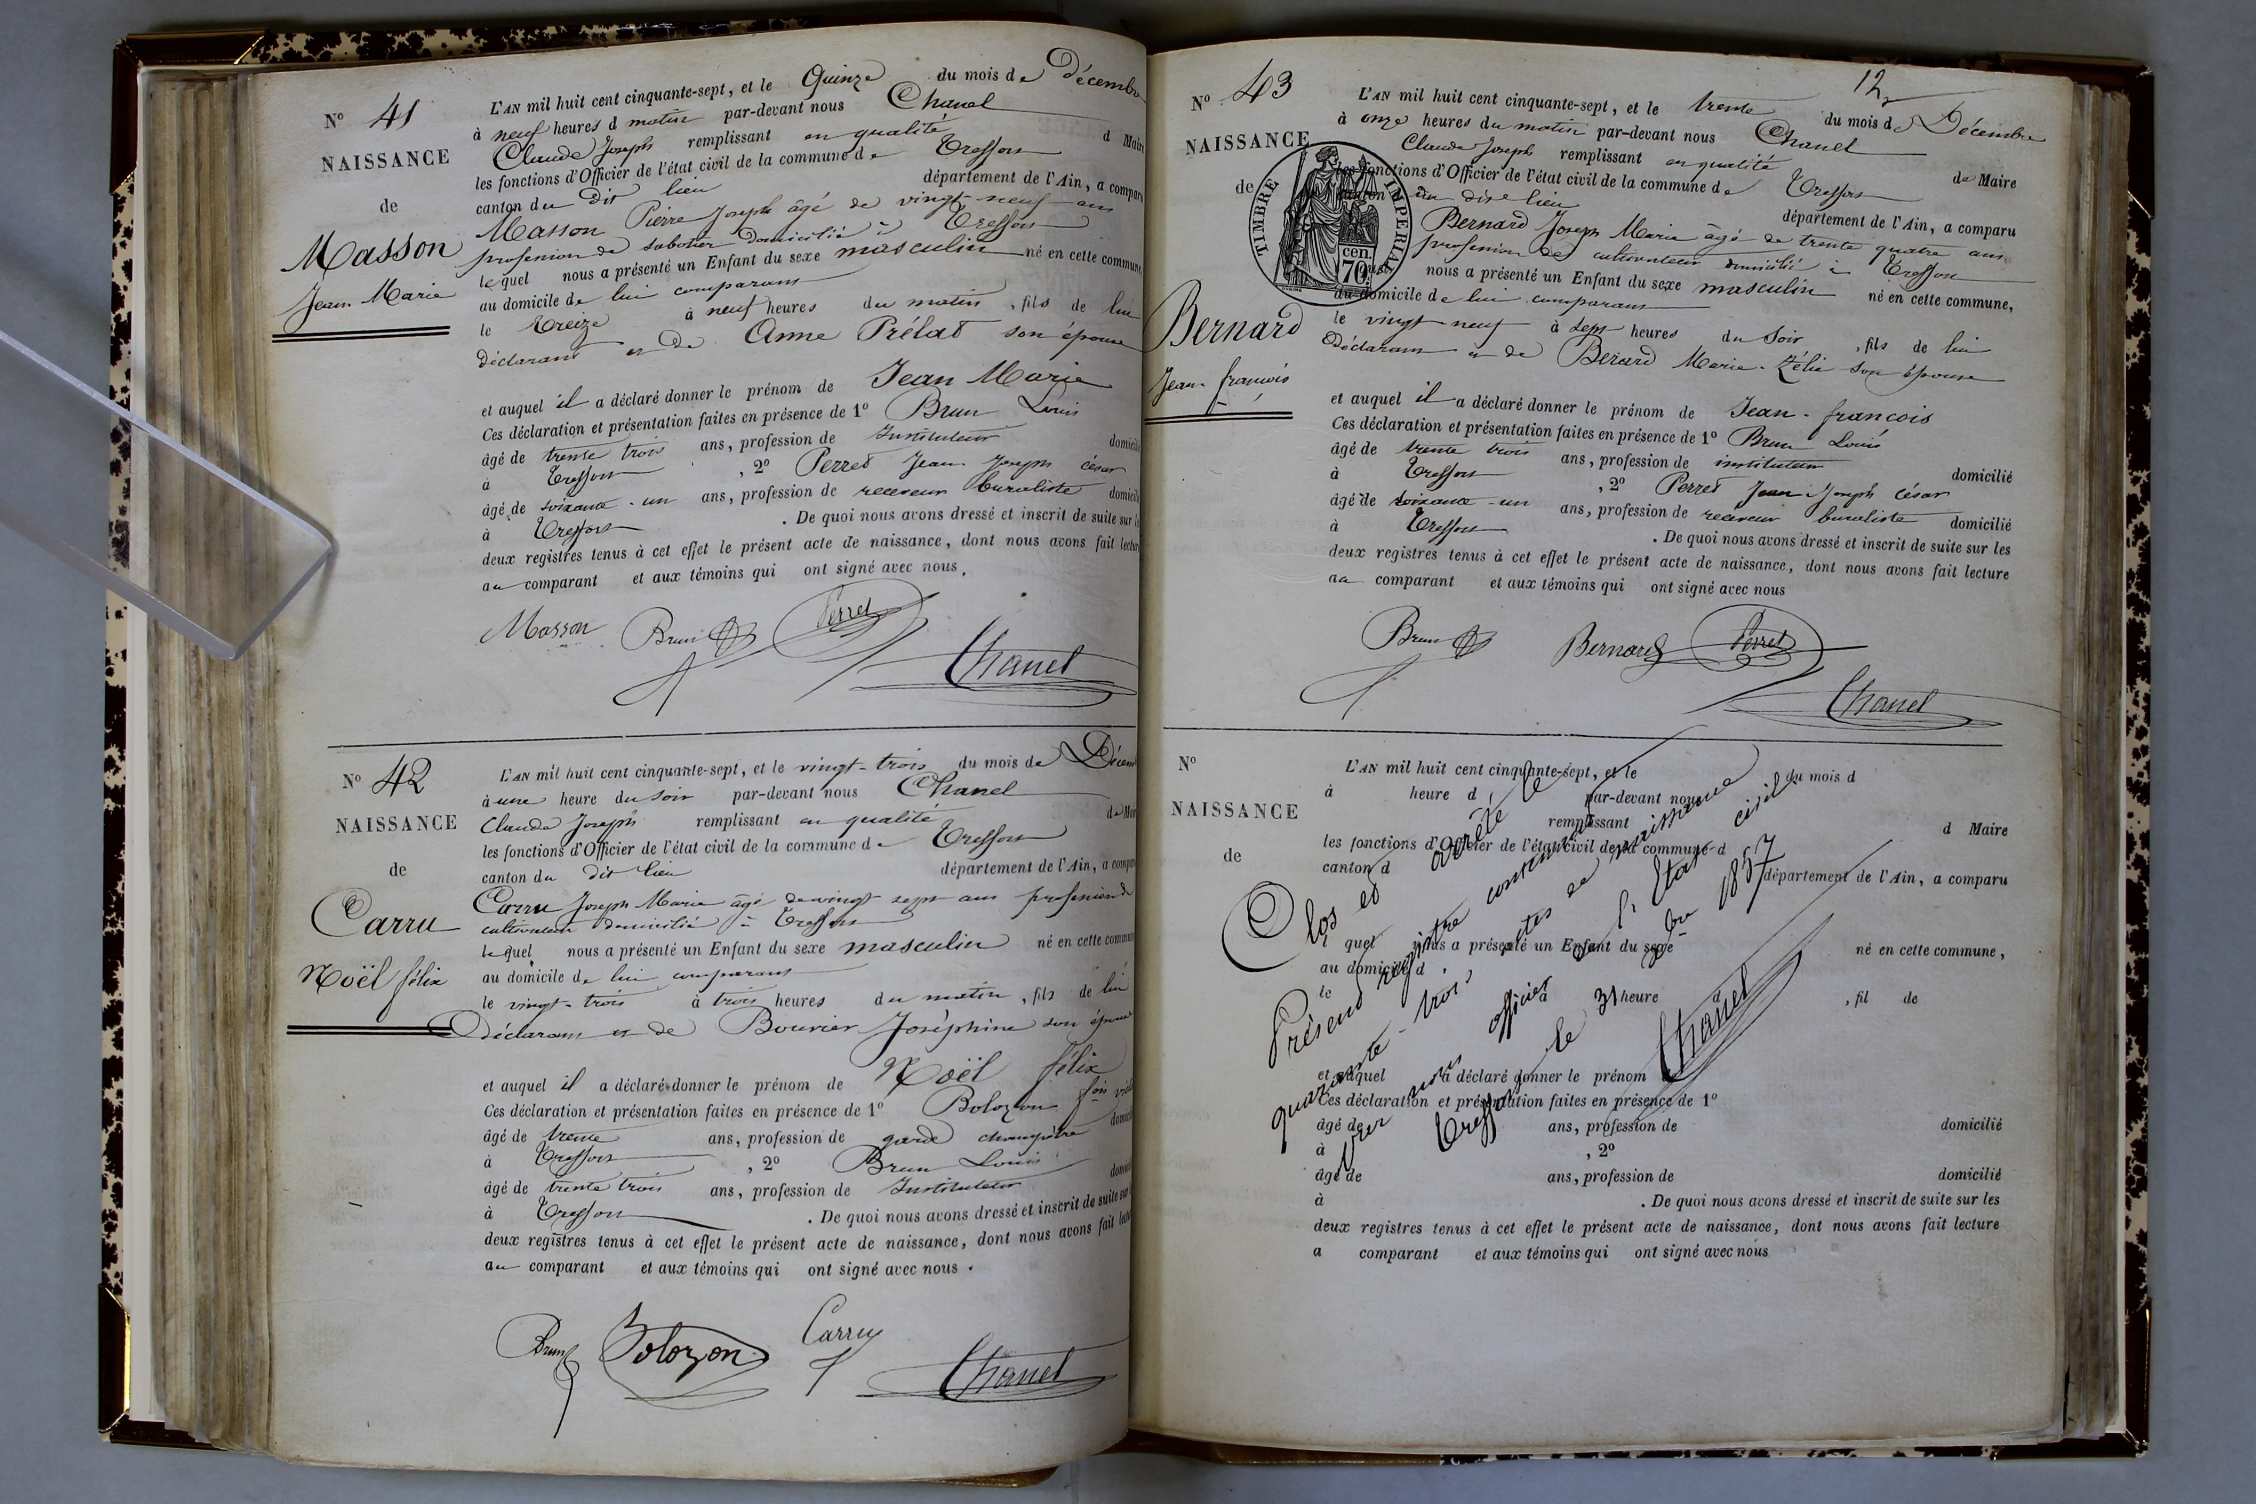 N° 41
NAISSANCE
de
Masson
Jean Marie
L'AN mil huit cent cinquante-sept, et le Quinze du mois de Décembre
à neuf heures d matin par-devant nous Chanel
Claude Joseph remplissant en qualité d Maire
les fonctions d'Officier de l'état civil de la commune de Treffort
canton du dit lieu département de l'Ain, a comparu
Masson Pierre Joseph âgé de vingt-neuf ans
profession de sabotier domicilié à Treffort
lequel nous a présenté un Enfant du sexe masculin né en cette commune
au domicile de lui comparant
le treize à neuf heures du matin, fils de lui
déclarant et de Anne Prélat son épouse
et auquel il a déclaré donner le prénom de Jean Marie
Ces déclaration et présentation faites en présence de 1° Brun Louis
âgé de trente trois ans, profession de Instituteur domicilié
à Treffort, 2° Perret Jean Joseph césar
âgé de soixante-un ans, profession de receveur buraliste domicilié
à Treffort. De quoi nous avons dressé et inscrit de suite sur les
deux registres tenus à cet effet le présent acte de naissance, dont nous avons fait lecture
au comparant et aux témoins qui ont signé avec nous.
Masson Brun Perret
Chanel
N° 42
NAISSANCE
de
Carru
Noël félix
L'AN mil huit cent cinquante-sept, et le vingt-trois du mois de Décem
à une heure du soir par-devant nous Chanel
Claude Joseph remplissant en qualité de Maire
les fonctions d'Officier de l'état civil de la commune de Treffort
canton du dit lieu département de l'Ain, a comparu
Carru Joseph Marie âgé de vingt sept ans profession de
cultivateur domicilié à Treffort
lequel nous a présenté un Enfant du sexe masculin né en cette commune
au domicile de lui comparant
le vingt-trois à trois heures du matin, fils de lui
déclarant et de Bouvier Joséphine son épouse
et auquel il a déclaré donner le prénom de Noël félix
Ces déclaration et présentation faites en présence de 1° Bolozon
âgé de trente ans, profession de garde champêtre domicilié
à Treffort, 2° Brun Louis
âgé de trente trois ans, profession de Instituteur domicilié
à Treffort. De quoi nous avons dressé et inscrit de suite sur
deux registres tenus à cet effet le présent acte de naissance, dont nous avons fait lecture
au comparant et aux témoins qui ont signé avec nous.
Brun Bolozon Carru
Chanel
12
N° 43
NAISSANCE
de
Bernard
Jean-françois
TIMBRE IMPERIAL
70 cen.
L'AN mil huit cent cinquante-sept, et le trente du mois de Décembre
à onze heures du matin par-devant nous Chanel
Claude Joseph remplissant en qualité de Maire
les fonctions d'Officier de l'état civil de la commune de Treffort
canton du dit lieu département de l'Ain, a comparu
Bernard Joseph Marie âgé de trente quatre ans
profession de cultivateur domicilié à Treffort
nous a présenté un Enfant du sexe masculin né en cette commune,
au domicile de lui comparant
le vingt-neuf à sept heures du soir, fils de lui
déclarant et de Berard Marie-Zélie son épouse
et auquel il a déclaré donner le prénom de Jean-francois
Ces déclaration et présentation faites en présence de 1° Brun Louis
âgé de trente trois ans, profession de instituteur domicilié
à Treffort, 2° Perret Jean Joseph césar
âgé de soixante-un ans, profession de receveur buraliste domicilié
à Treffort. De quoi nous avons dressé et inscrit de suite sur les
deux registres tenus à cet effet le présent acte de naissance, dont nous avons fait lecture
au comparant et aux témoins qui ont signé avec nous
Brun Bernard Perret
Chanel
N°
NAISSANCE
de
L'AN mil huit cent cinquante-sept, et le du mois d
à heure d par-devant nous
remplissant d Maire
les fonctions d'Officier de l'état civil de la commune d
canton d département de l'Ain, a comparu
quel nous a présenté un Enfant du sexe né en cette commune,
au domicile d
le à heure d, fil de
et auquel a déclaré donner le prénom d
Ces déclaration et présentation faites en présence de 1°
âgé de ans, profession de domicilié
à, 2°
âgé de ans, profession de domicilié
à. De quoi nous avons dressé et inscrit de suite sur les
deux registres tenus à cet effet le présent acte de naissance, dont nous avons fait lecture
a comparant et aux témoins qui ont signé avec nous
Clos et arrêté le
Présent registre contenant
quarante-trois actes de naissance
par nous officier de l'Etat civil
Treffort le 31 Xbre 1857
Chanel